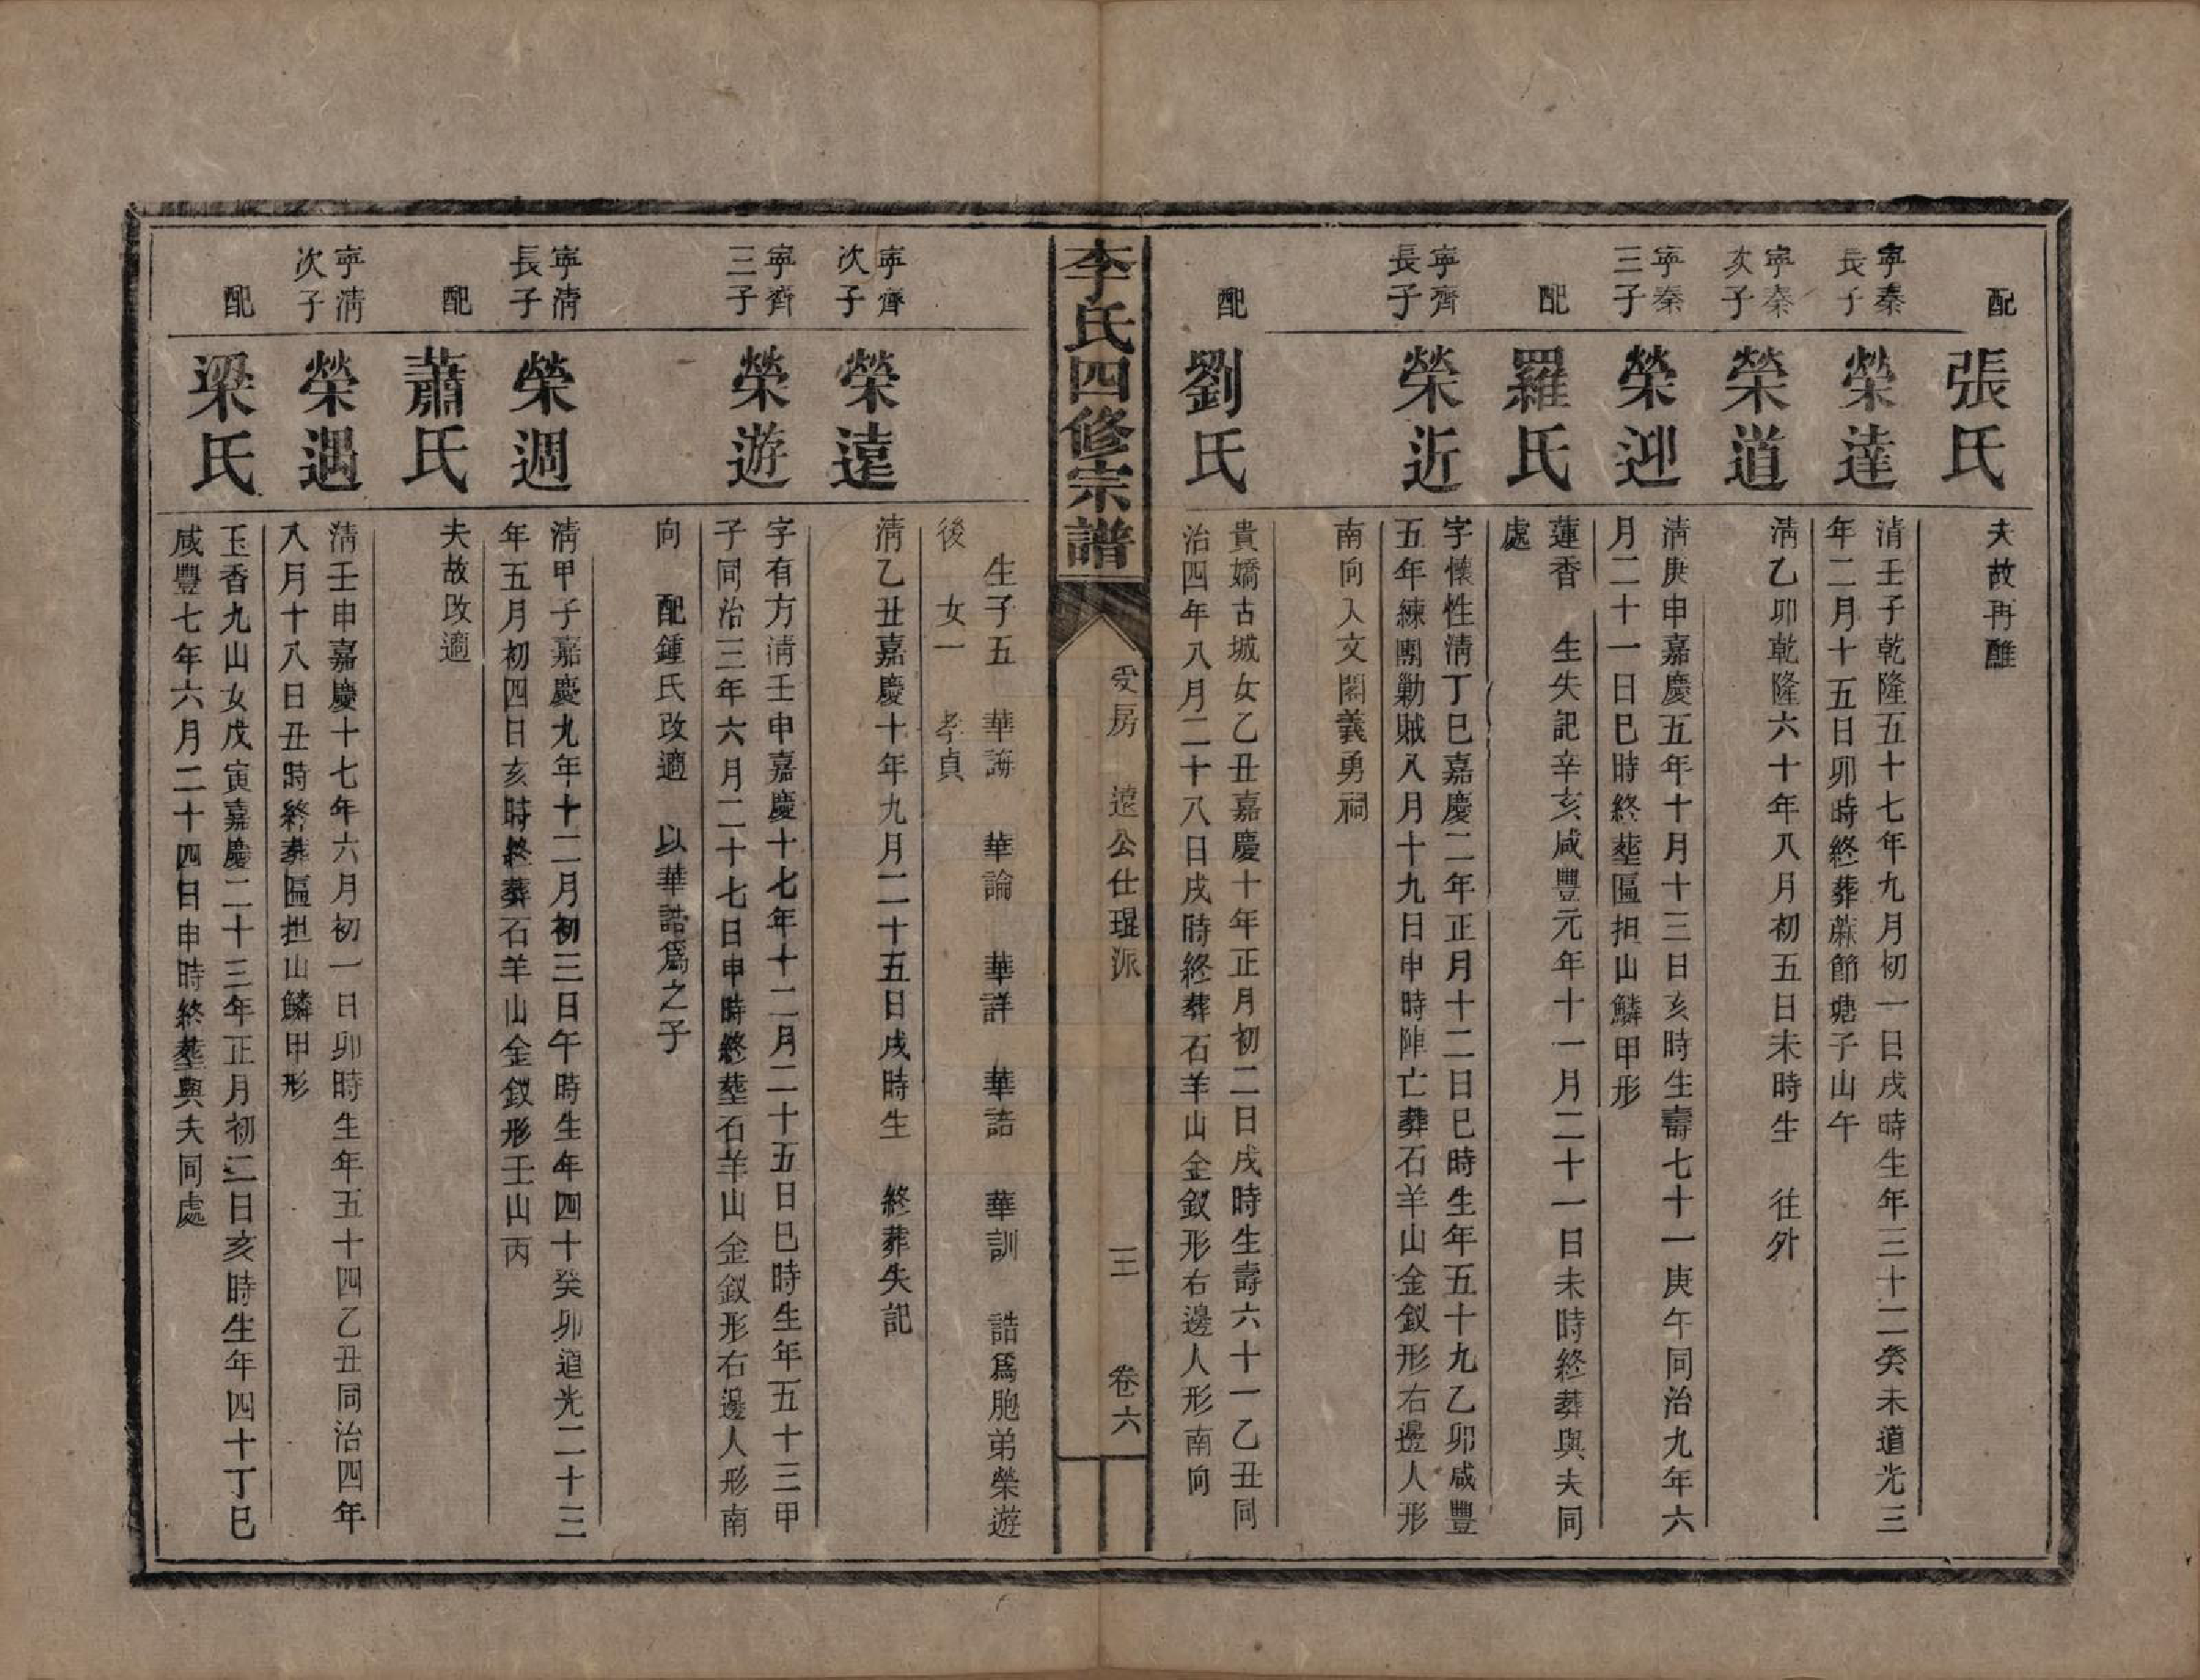 配
張氏
夫故再醮
寧秦
長子
榮達
清壬子乾隆五十七年九月初一日戌時生年三十二癸未道光三
年二月十五日卯時終葬蔴節塘子山午
寧秦
次子
榮道
清乙卯乾隆六十年八月初五日未時生　往外
寧秦
三子
榮迎
清庚申嘉慶五年十月十三日亥時生壽七十一庚午同治九年六
月二十一日巳時終塟區担山鱗甲形
配
羅氏
蓮香　生失記辛亥咸豐元年十一月二十一日未時終葬與夫同
處
寧齊
長子
榮近
字懷性清丁巳嘉慶二年正月十二日巳時生年五十九乙卯咸豐
五年練團勦賊八月十九日申時陣亡葬石羊山金釵形右邊人形
南向入文閣義勇祠
配
劉氏
貴嬌古城女乙丑嘉慶十年正月初二日戌時生壽六十一乙丑同
治四年八月二十八日戌時終葬石羊山金釵形右邊人形南向
李氏四修宗譜
受房　遠公仕琨派　三　卷六
生子五　華誨　華論　華詳　華誥　華訓　誥爲胞弟榮遊
後　女一　孝貞
寧齊
次子
榮遠
清乙丑嘉慶十年九月二十五日戌時生　終葬失記
寧齊
三子
榮遊
字有方清壬申嘉慶十七年十二月二十五日巳時生年五十三甲
子同治三年六月二十七日申時終塟石羊山金釵形右邊人形南
向　配鍾氏改適　以華誥爲之子
寧清
長子
榮週
清甲子嘉慶九年十二月初三日午時生年四十癸卯道光二十三
年五月初四日亥時終葬石羊山金釵形壬山丙
配
蕭氏
夫故改適
寧清
次子
榮遇
清壬申嘉慶十七年六月初一日卯時生年五十四乙丑同治四年
八月十八日丑時終葬區担山鱗甲形
配
梁氏
玉香九山女戊寅嘉慶二十三年正月初二日亥時生年四十丁巳
咸豐七年六月二十四日申時終塟與夫同處